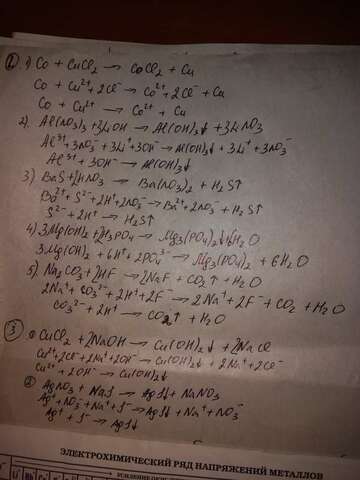 ② 1) Co + CuCl₂ → CoCl₂ + Cu
Co + Cu²⁺ + 2Cl⁻ → Co²⁺ + 2Cl⁻ + Cu
Co + Cu²⁺ → Co²⁺ + Cu
2) Al(NO₃)₃ + 3LiOH → Al(OH)₃↓ + 3LiNO₃
Al³⁺ + 3NO₃⁻ + 3Li⁺ + 3OH⁻ → Al(OH)₃↓ + 3Li⁺ + 3NO₃⁻
Al³⁺ + 3OH⁻ → Al(OH)₃↓
3) BaS + 2HNO₃ → Ba(NO₃)₂ + H₂S↑
Ba²⁺ + S²⁻ + 2H⁺ + 2NO₃⁻ → Ba²⁺ + 2NO₃⁻ + H₂S↑
S²⁻ + 2H⁺ → H₂S↑
4) 3Mg(OH)₂ + 2H₃PO₄ → Mg₃(PO₄)₂↓ + 6H₂O
3Mg(OH)₂ + 6H⁺ + 2PO₄³⁻ → Mg₃(PO₄)₂ + 6H₂O
5) Na₂CO₃ + 2HF → 2NaF + CO₂↑ + H₂O
2Na⁺ + CO₃²⁻ + 2H⁺ + 2F⁻ → 2Na⁺ + 2F⁻ + CO₂ + H₂O
CO₃²⁻ + 2H⁺ → CO₂↑ + H₂O
③ ① CuCl₂ + 2NaOH → Cu(OH)₂↓ + 2NaCl
Cu²⁺ + 2Cl⁻ + 2Na⁺ + 2OH⁻ → Cu(OH)₂↓ + 2Na⁺ + 2Cl⁻
Cu²⁺ + 2OH⁻ → Cu(OH)₂↓
② AgNO₃ + NaS → AgS↓ + NaNO₃
Ag⁺ + NO₃⁻ + Na⁺ + S⁻ → AgS↓ + Na⁺ + NO₃⁻
Ag⁺ + S⁻ → AgS↓
ЭЛЕКТРОХИМИЧЕСКИЙ РЯД НАПРЯЖЕНИЙ МЕТАЛЛОВ